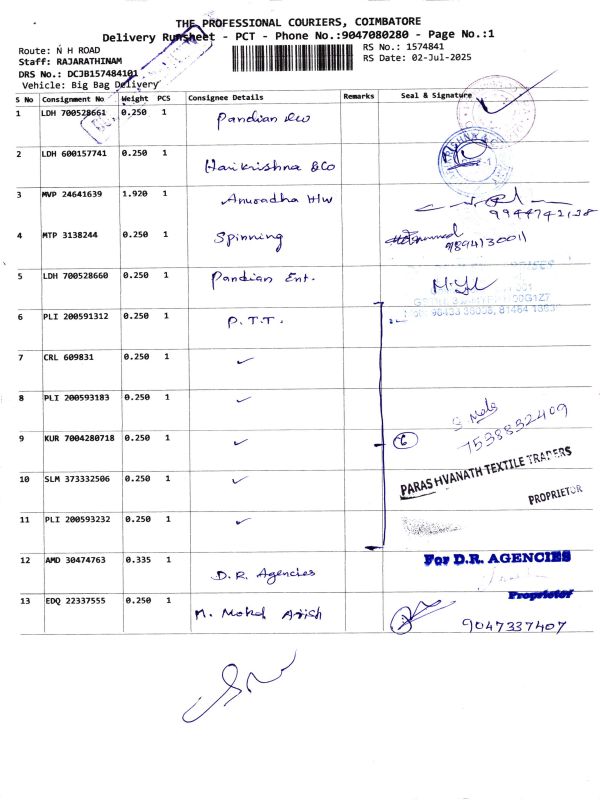 THE PROFESSIONAL COURIERS, COIMBATORE
Delivery Runsheet - PCT - Phone No.:9047080280 - Page No.:1
Route: N H ROAD
RS No.: 1574841
Staff: RAJARATHINAM
RS Date: 02-Jul-2025
DRS No.: DCJB157484101
Vehicle: Big Bag Delivery
S No Consignment No Weight PCS Consignee Details Remarks Seal & Signature
1 LDH 700528661 0.250 1 Pandian
2 LDH 600157741 0.250 1 Harikrishna & Co
3 MVP 24641639 1.920 1 Anuradha H/W
9944742138
4 MTP 3138244 0.250 1 Spinning
9894130011
5 LDH 700528660 0.250 1 Pandian Ent.
6 PLI 200591312 0.250 1 P.T.T.
7 CRL 609831 0.250 1 ✓
8 PLI 200593183 0.250 1 ✓
7538832409
9 KUR 7004280718 0.250 1 ✓ 6
PARASHVANATH TEXTILE TRADERS
10 SLM 373332506 0.250 1 ✓
PROPRIETOR
11 PLI 200593232 0.250 1 ✓
12 AMD 30474763 0.335 1 D.R. Agencies
For D.R. AGENCIES
Proprietor
13 EDQ 22337555 0.250 1 M. Mohd
9047337407